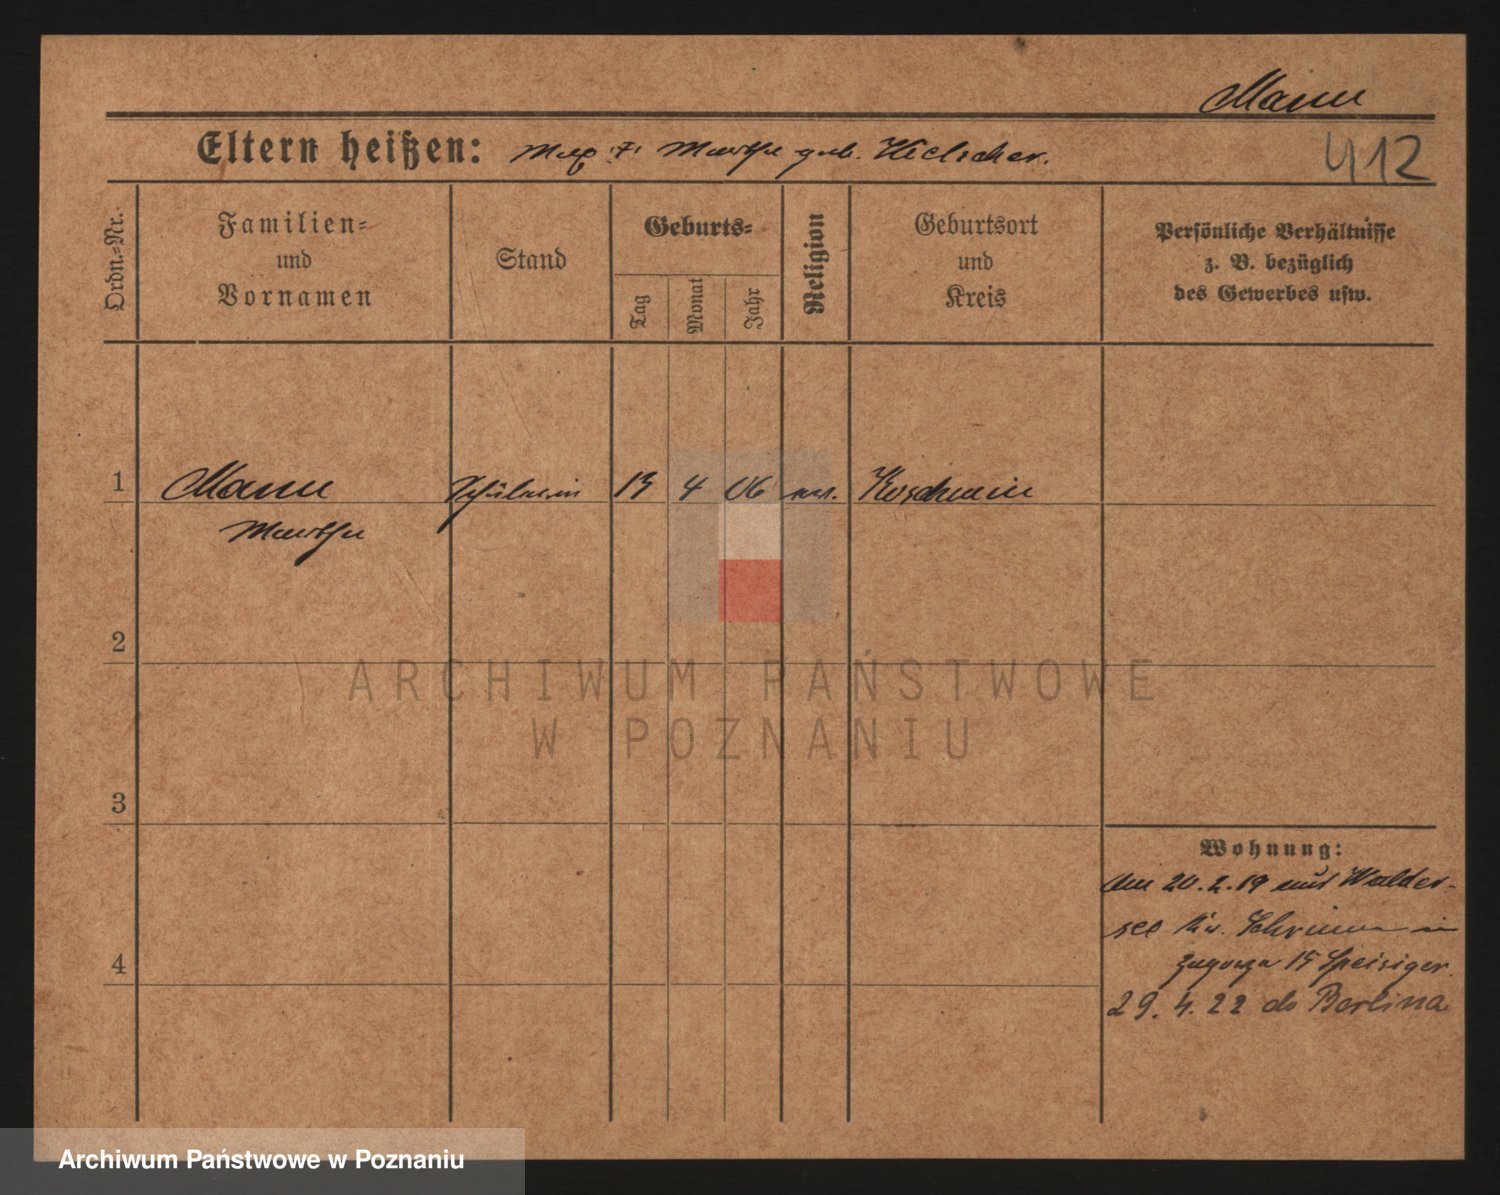 Mann
Eltern heißen: Max ✝ Martha geb. Kielscher.
412
Ordn.-Nr.
Familien-
und
Vornamen
Stand
Geburts-
Tag
Monat
Jahr
Religion
Geburtsort
und
Kreis
Persönliche Verhältnisse
z. B. bezüglich
des Gewerbes usw.
1 Mann Schülerin 13 4 06 ev. Koschmin
Martha
2
3
4
Wohnung:
Am 20.2.19 aus Walder-
see Kr. Schrimm in
Zagorze 15 Speisiger.
29.4.22 do Berlina
ARCHIWUM PAŃSTWOWE
W POZNANIU
Archiwum Państwowe w Poznaniu